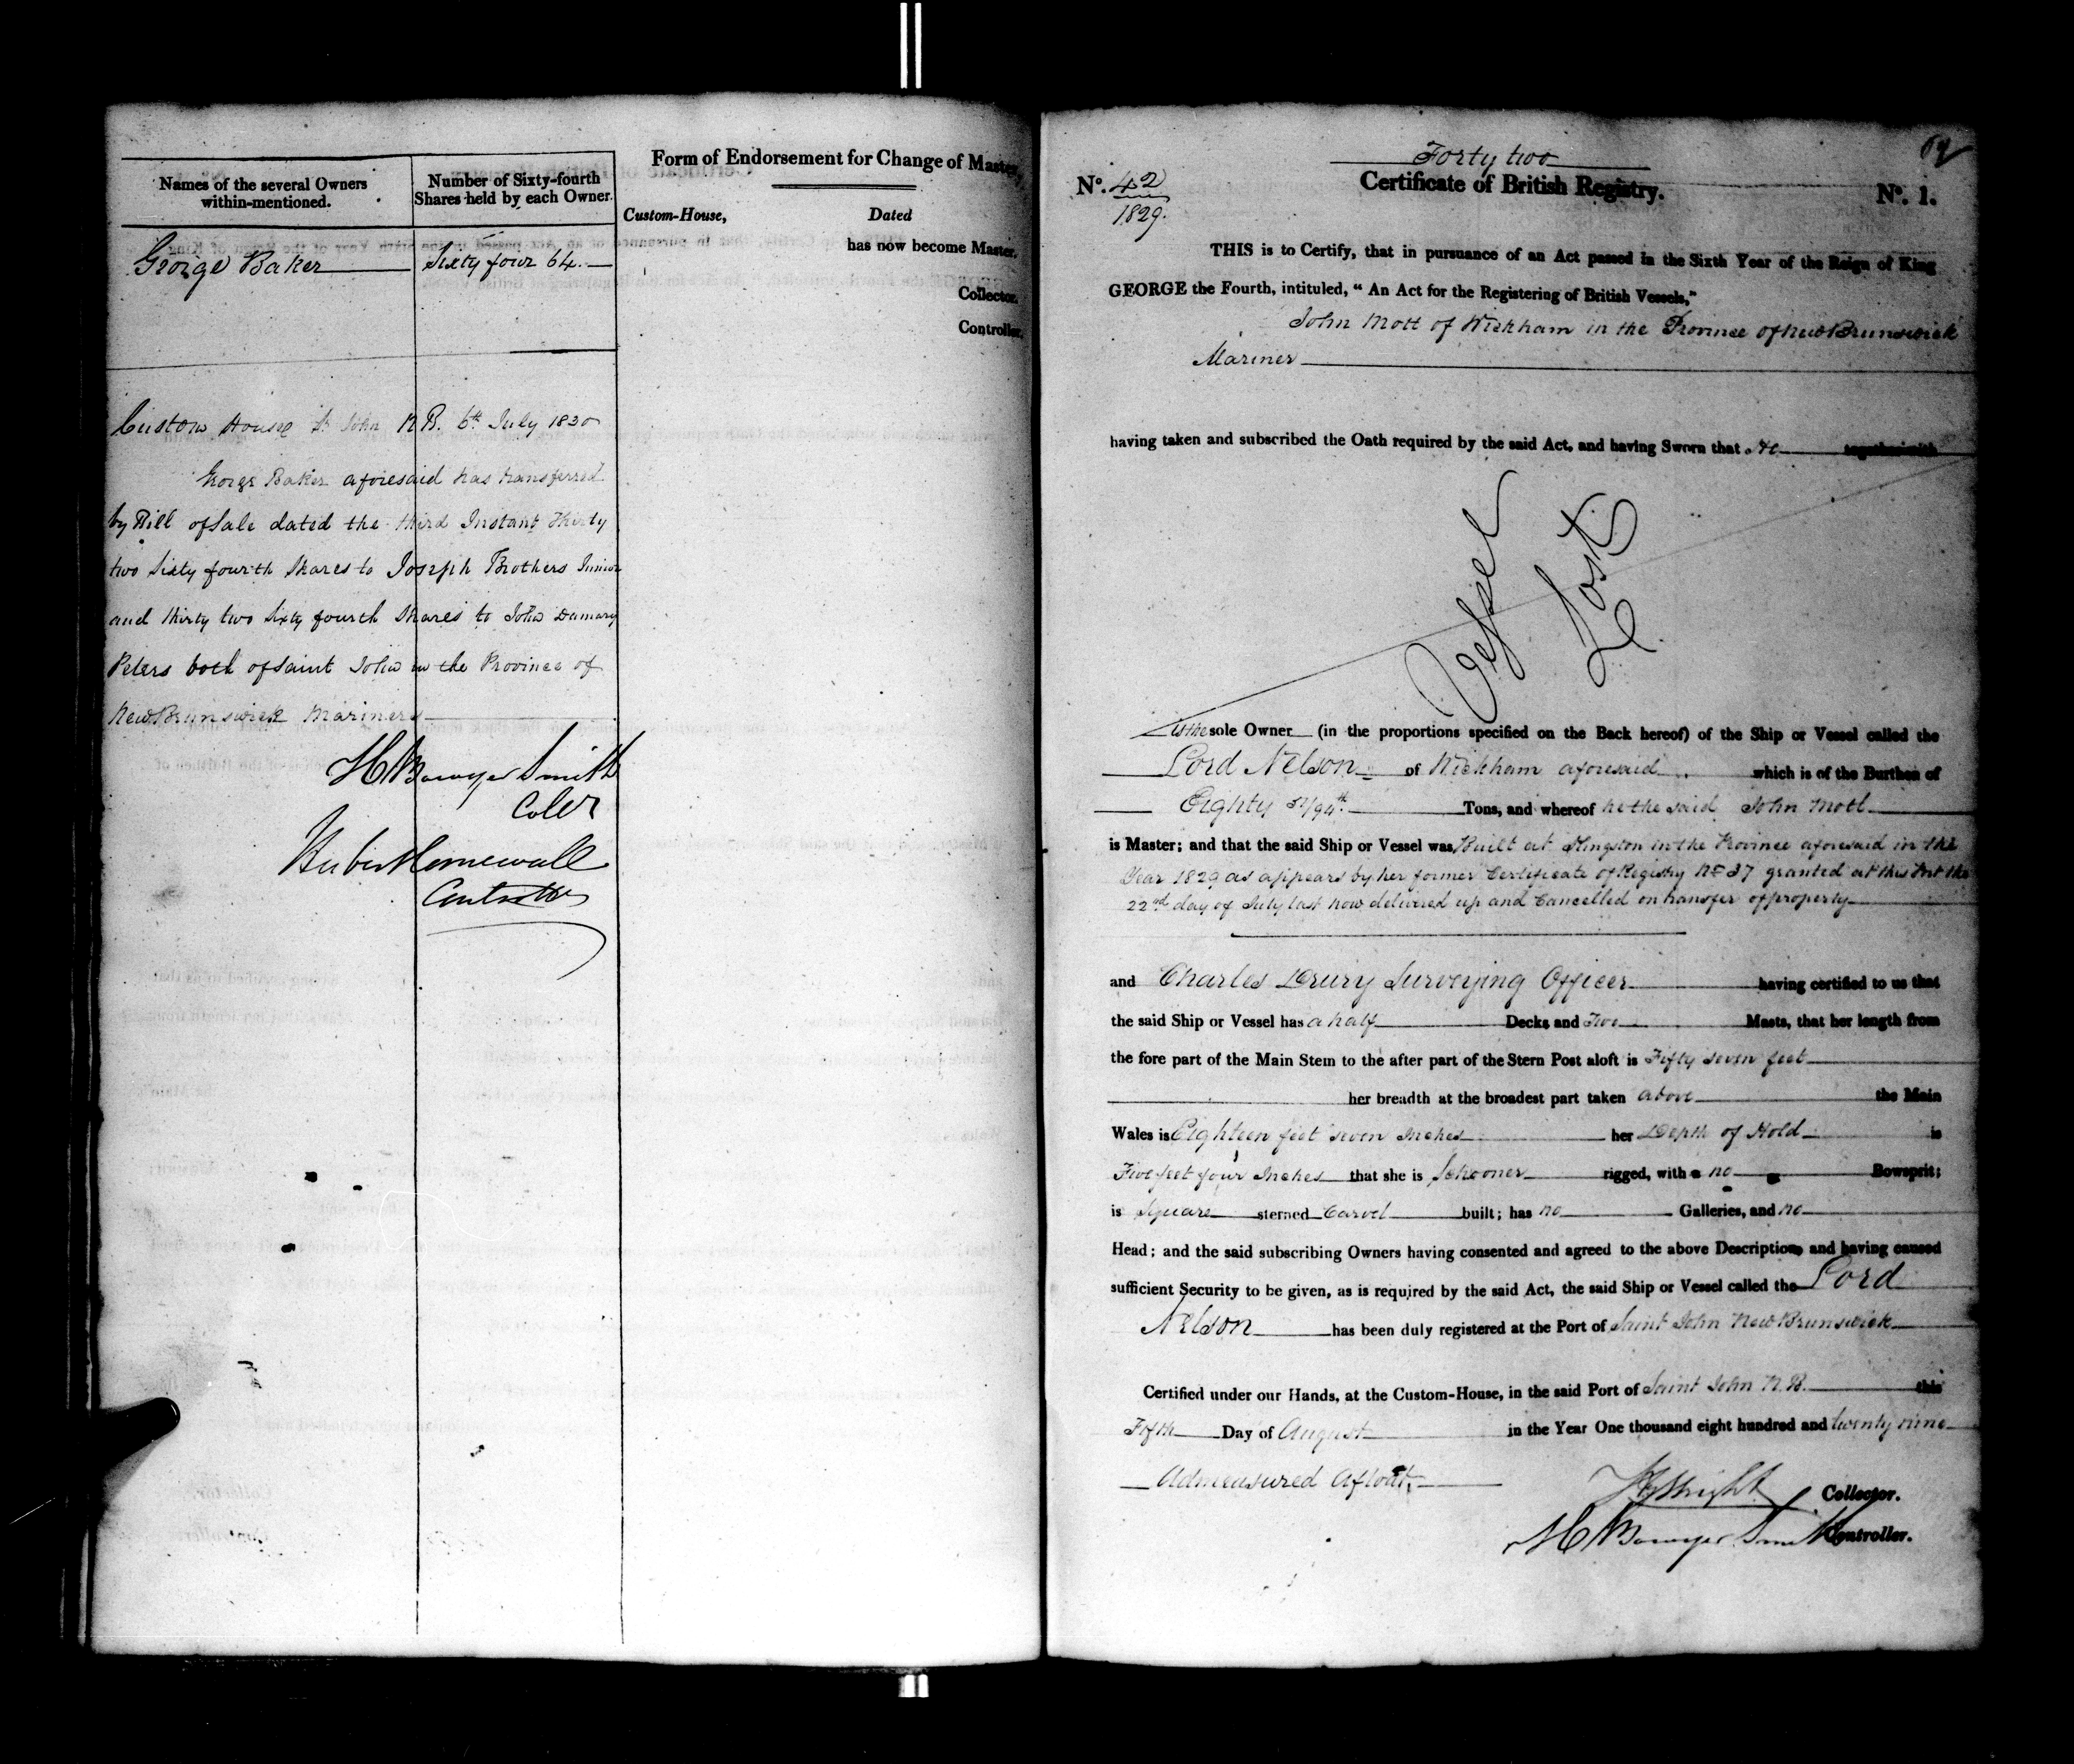 Names of the several Owners within-mentioned.
Number of Sixty-fourth Shares held by each Owner.
George Baker
Sixty four 64.
Custom House St John N.B. 6th July 1830
George Baker aforesaid has transferred
by Bill of Sale dated the third Instant Thirty
two Sixty fourth Shares to Joseph Brothers Junior
and thirty two Sixty fourth Shares to John Damary
Peters both of Saint John in the Province of
New Brunswick Mariners
H Bowyer Smith
Collr
Controller
Form of Endorsement for Change of Master.
Custom-House, Dated
has now become Master.
Collector.
Controller.
69
Forty two
No. 42 Certificate of British Registry. No. 1.
1829.
THIS is to Certify, that in pursuance of an Act passed in the Sixth Year of the Reign of King
GEORGE the Fourth, intituled, "An Act for the Registering of British Vessels,"
John Mott of Wickham in the Province of New Brunswick
Mariner
having taken and subscribed the Oath required by the said Act, and having Sworn that He together with
Vessel
Lost
is the sole Owner (in the proportions specified on the Back hereof) of the Ship or Vessel called the
Lord Nelson of Wickham aforesaid which is of the Burthen of
Eighty 51/94th Tons, and whereof he the said John Mott
is Master; and that the said Ship or Vessel was Built at Kingston in the Province aforesaid in the
Year 1829 as appears by her former Certificate of Registry No 37 granted at this Port the
22nd day of July last now delivered up and Cancelled on transfer of property
and Charles Drury Surveying Officer having certified to us that
the said Ship or Vessel has a half Decks and Two Masts, that her length from
the fore part of the Main Stem to the after part of the Stern Post aloft is Fifty seven feet
her breadth at the broadest part taken above the Main
Wales is Eighteen feet seven Inches her Depth of Hold is
Five feet four Inches that she is Schooner rigged, with a no Bowsprit;
is Square sterned Carvel built; has no Galleries, and no
Head; and the said subscribing Owners having consented and agreed to the above Description, and having caused
sufficient Security to be given, as is required by the said Act, the said Ship or Vessel called the Lord
Nelson has been duly registered at the Port of Saint John New Brunswick
Certified under our Hands, at the Custom-House, in the said Port of Saint John N.B. this
Fifth Day of August in the Year One thousand eight hundred and twenty nine
Admeasured Afloat.
Wright Collector.
H Bowyer Smith Controller.